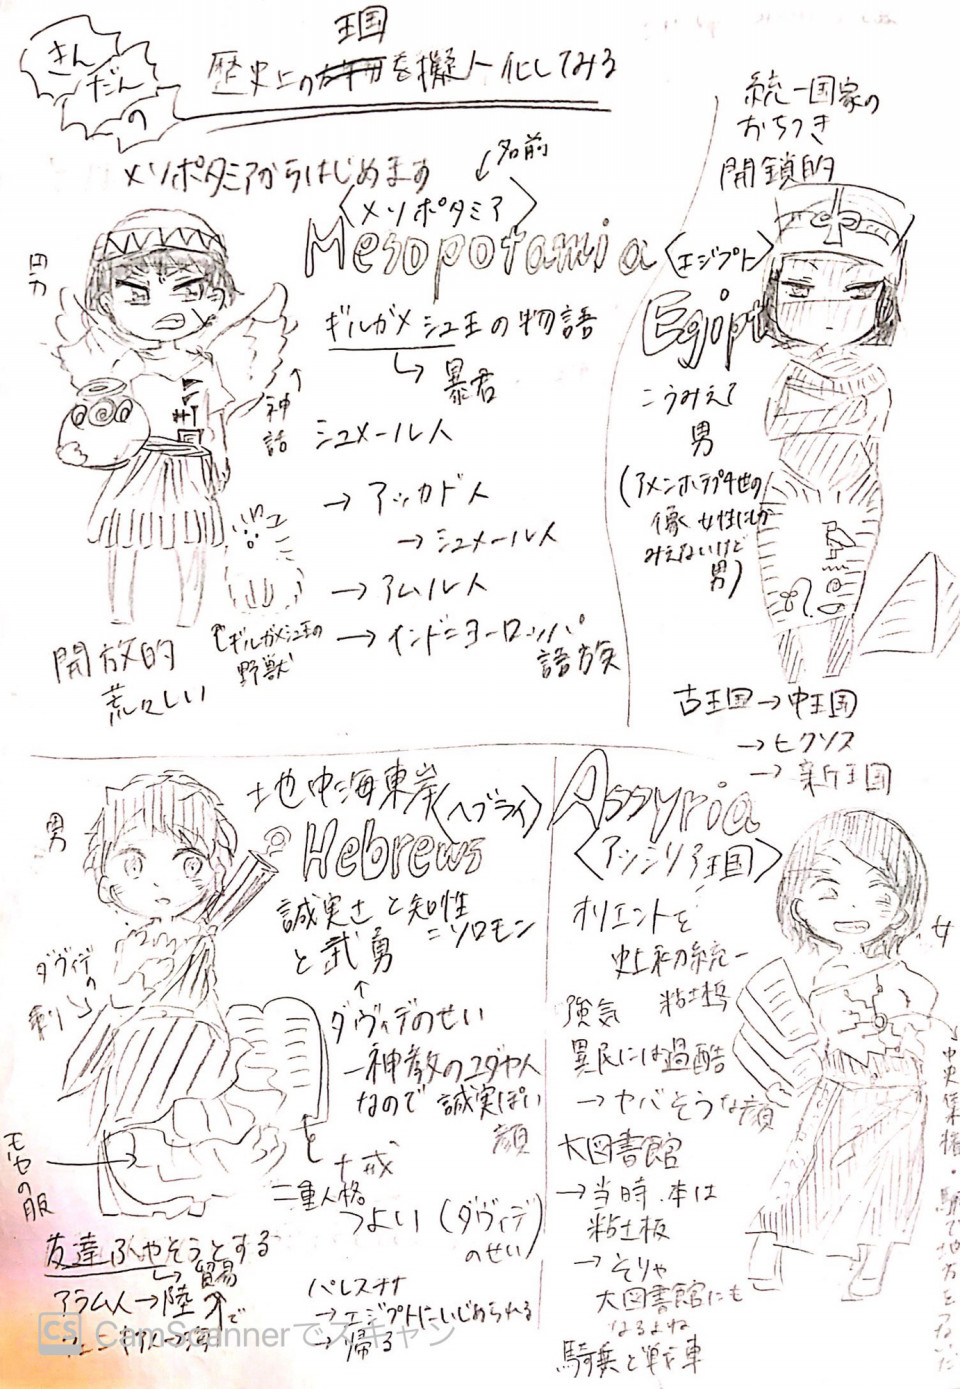 きん
だん
の
王国
歴史上のを擬人化してみる
メソポタミアからはじめます
↙名前
〈メソポタミア〉
Mesopotamia
男
ギルガメシュ王の物語
↳暴君
↑
神
話
シュメール人
→アッカド人
→シュメール人
→アムル人
→インドニヨーロッパ
語族
↑ギルガメシュ王の
野獣
開放的
荒々しい
統一国家の
おちつき
開鎖的
〈エジプト〉
Egipt
こうみえて
男
(アメンホテプ4世の
像 女性にしか
みえないけど
男)
古王国→中王国
→ヒクソス
→新王国
地中海東岸
〈ヘブライ〉
Hebrews
男
誠実さと知性
=ソロモン
と武勇
↑
ダヴィデのせい
一神教のユダヤ人
なので 誠実ぽい
顔
ダヴィデの
モーセの服
十戒
二重人格
つよい(ダヴィデ
のせい)
友達ふやそうとする
↳貿易
アラム人→陸で
パレスチナ
→エジプトにいじめられる
→帰る
Assyria
〈アッシリア王国〉
女
オリエントを
史上初統一
粘土板
強気
異民には過酷
→ヤバそうな顔
大図書館
→当時、本は
粘土板
→そりゃ
大図書館にも
なるよね
騎兵と戦車
中央集権・駅で地方をつないだ
CS CamScannerでスキャン